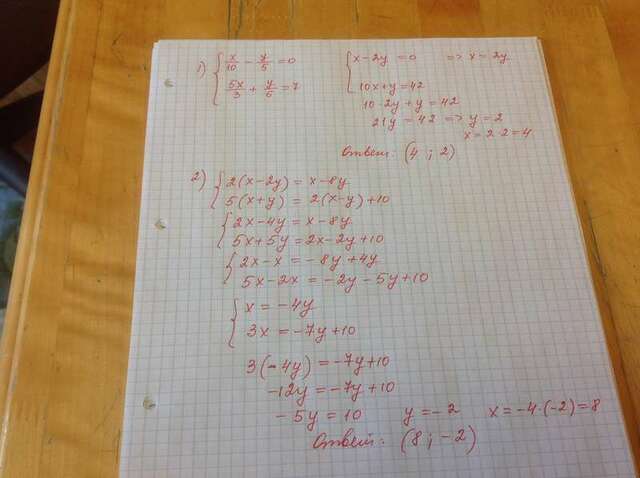 1) { x/10 - y/5 = 0
5x/3 + y/6 = 7
{ x - 2y = 0 => x = 2y
10x + y = 42
10·2y + y = 42
21y = 42 => y = 2
x = 2·2 = 4
Ответ: (4 ; 2)
2) { 2(x-2y) = x-8y
5(x+y) = 2(x-y)+10
{ 2x-4y = x-8y
5x+5y = 2x-2y+10
{ 2x-x = -8y+4y
5x-2x = -2y-5y+10
{ x = -4y
3x = -7y+10
3(-4y) = -7y+10
-12y = -7y+10
-5y = 10 y = -2 x = -4·(-2) = 8
Ответ: (8 ; -2)